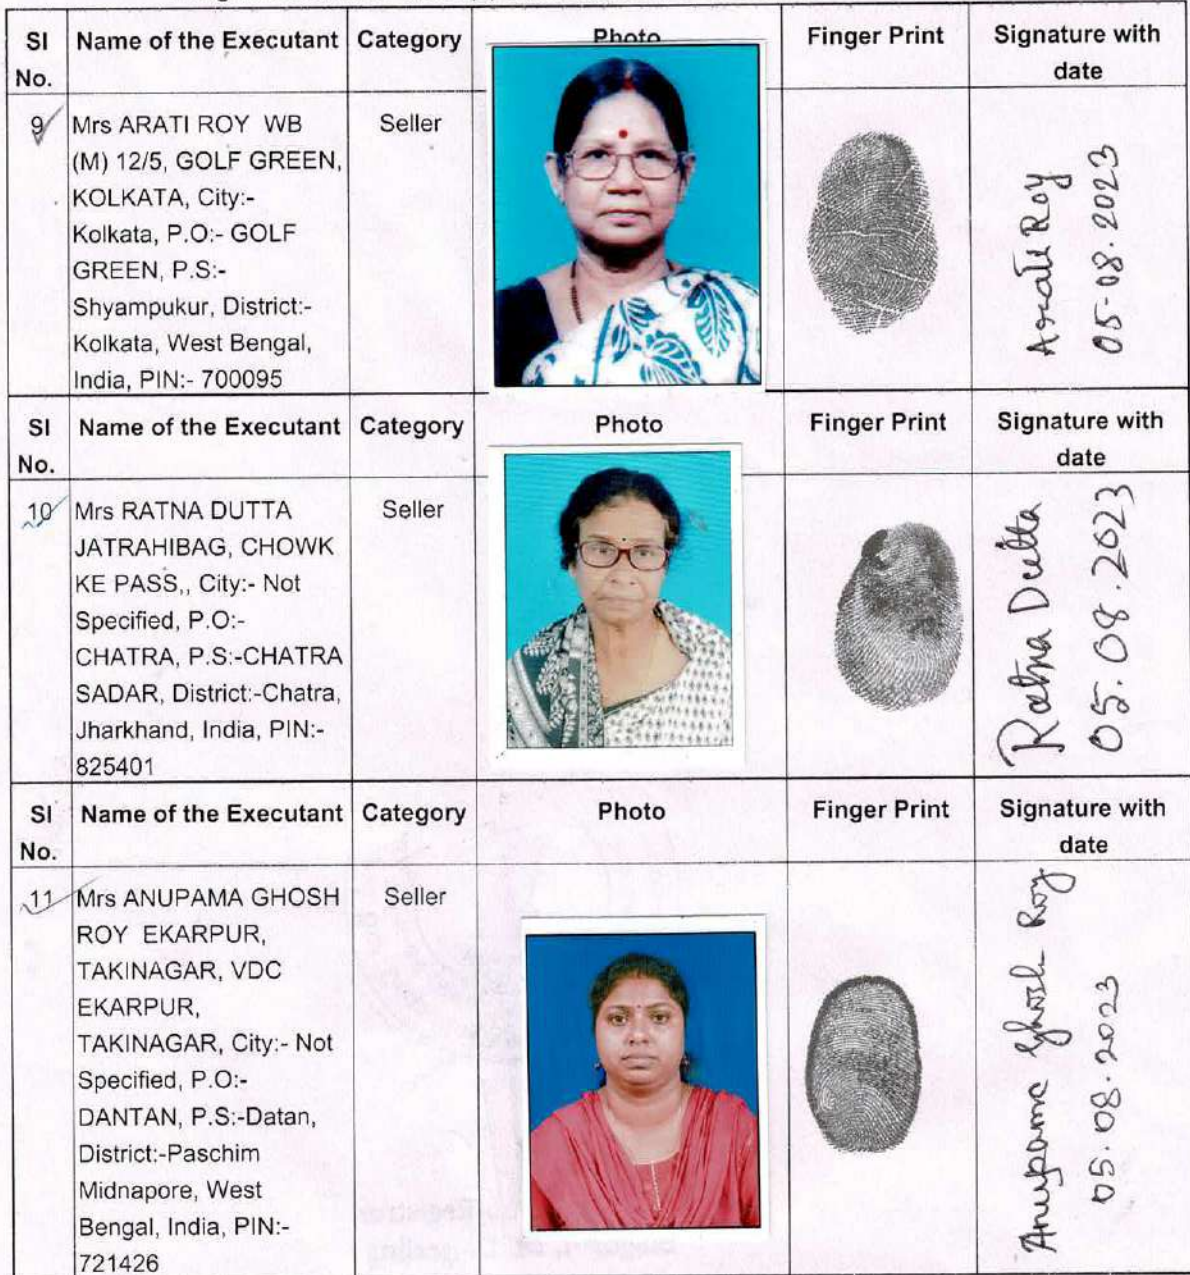 SI No. Name of the Executant Category Photo Finger Print Signature with date
9 Mrs ARATI ROY WB Seller
(M) 12/5, GOLF GREEN,
KOLKATA, City:-
Kolkata, P.O:- GOLF
GREEN, P.S:-
Shyampukur, District:-
Kolkata, West Bengal,
India, PIN:- 700095
Arati Roy
05-08-2023
SI No. Name of the Executant Category Photo Finger Print Signature with date
10 Mrs RATNA DUTTA Seller
JATRAHIBAG, CHOWK
KE PASS,, City:- Not
Specified, P.O:-
CHATRA, P.S:-CHATRA
SADAR, District:-Chatra,
Jharkhand, India, PIN:-
825401
Ratna Dutta
05.08.2023
SI No. Name of the Executant Category Photo Finger Print Signature with date
11 Mrs ANUPAMA GHOSH Seller
ROY EKARPUR,
TAKINAGAR, VDC
EKARPUR,
TAKINAGAR, City:- Not
Specified, P.O:-
DANTAN, P.S:-Datan,
District:-Paschim
Midnapore, West
Bengal, India, PIN:-
721426
Anupama Ghosh Roy
05.08.2023